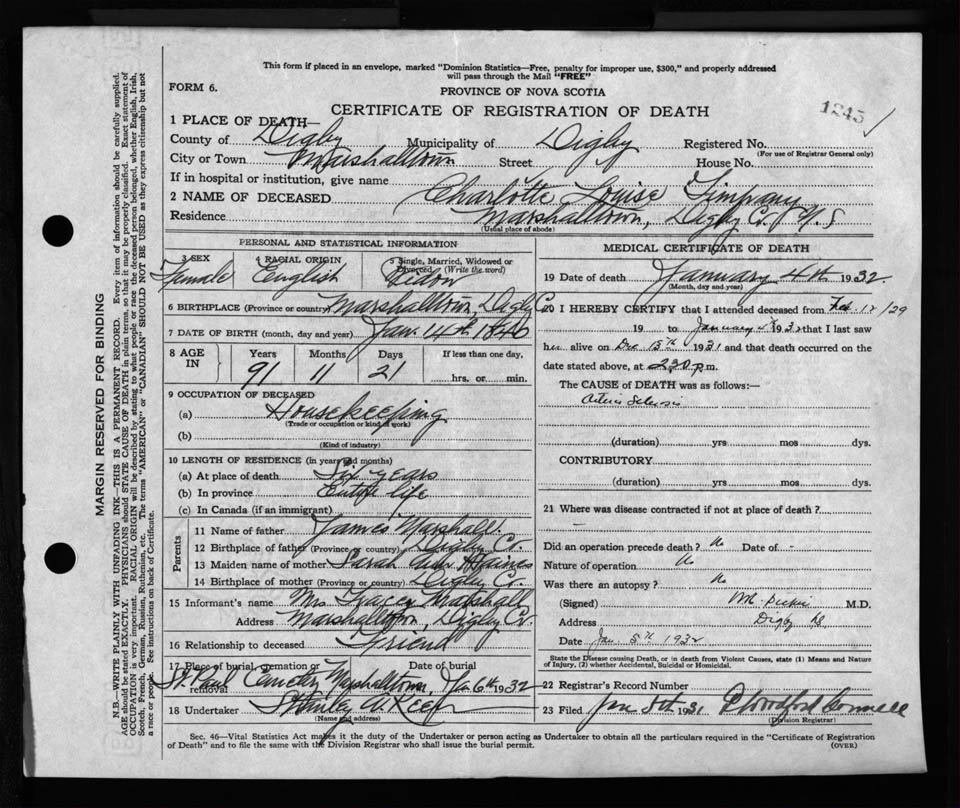 This form if placed in an envelope, marked "Dominion Statistics—Free, penalty for improper use, $300," and properly addressed
will pass through the Mail "FREE"
FORM 6.
PROVINCE OF NOVA SCOTIA
1245
CERTIFICATE OF REGISTRATION OF DEATH
1 PLACE OF DEATH—
County of Digby Municipality of Digby Registered No.
(For use of Registrar General only)
City or Town Marshalltown Street House No.
If in hospital or institution, give name
2 NAME OF DECEASED Charlotte Louise Timpany
Residence Marshalltown, Digby Co. N.S
(Usual place of abode)
PERSONAL AND STATISTICAL INFORMATION
3 SEX 4 RACIAL ORIGIN 5 Single, Married, Widowed or
Divorced (Write the word)
Female English
6 BIRTHPLACE (Province or country) Marshalltown, Digby Co
7 DATE OF BIRTH (month, day and year) Jan. 14th 1840
8 AGE IN Years Months Days If less than one day,
91 11 21 hrs. or min.
9 OCCUPATION OF DECEASED
(a) Housekeeping
(Trade or occupation or kind of work)
(b)
(Kind of industry)
10 LENGTH OF RESIDENCE (in years and months)
(a) At place of death Six years
(b) In province Entire life
(c) In Canada (if an immigrant)
Parents
11 Name of father James Marshall.
12 Birthplace of father (Province or country) Digby Co.
13 Maiden name of mother Sarah Ann Haines
14 Birthplace of mother (Province or country) Digby Co.
15 Informant's name Mrs Tracey Marshall
Address Marshalltown, Digby Co.
16 Relationship to deceased Friend
17 Place of burial, cremation or removal Date of burial
St. Paul Cemetery Marshalltown, Jan 6th 1932
18 Undertaker Stanley
(Name and address)
MEDICAL CERTIFICATE OF DEATH
19 Date of death January 4th 1932.
(Month, day and year)
20 I HEREBY CERTIFY that I attended deceased from Feb. 12/29
19 to January 4 1932 that I last saw
her alive on Dec 15th 1931 and that death occurred on the
date stated above, at 2.30 p.m.
The CAUSE OF DEATH was as follows:
(duration) yrs mos dys.
CONTRIBUTORY
(duration) yrs mos dys.
21 Where was disease contracted if not at place of death?
Did an operation precede death? No Date of -
Nature of operation No
Was there an autopsy? No
(Signed) M.D.
Address Digby
Date Jan. 5th 1932
State the Disease causing Death, or in death from Violent Causes, state (1) Means and Nature
of Injury, (2) whether Accidental, Suicidal or Homicidal.
22 Registrar's Record Number
23 Filed Jan 8th 1931
(Division Registrar)
Sec. 46—Vital Statistics Act makes it the duty of the Undertaker or person acting as Undertaker to obtain all the particulars required in the "Certificate of Registration
of Death" and to file the same with the Division Registrar who shall issue the burial permit.
(OVER)
MARGIN RESERVED FOR BINDING
N.B.—WRITE PLAINLY WITH UNFADING INK—THIS IS A PERMANENT RECORD. Every item of information should be carefully supplied.
AGE should be stated EXACTLY. PHYSICIANS should STATE CAUSE OF DEATH in plain terms, so that it may be properly classified. Exact statement of
OCCUPATION is very important. RACIAL ORIGIN will be described by stating to what people or race the deceased person belonged, whether English, Irish,
Scotch, French, German, Russian, Ruthenian, etc. The terms "AMERICAN" or "CANADIAN" SHOULD NOT BE USED as they express citizenship but not
a race or people. See instructions on back of Certificate.